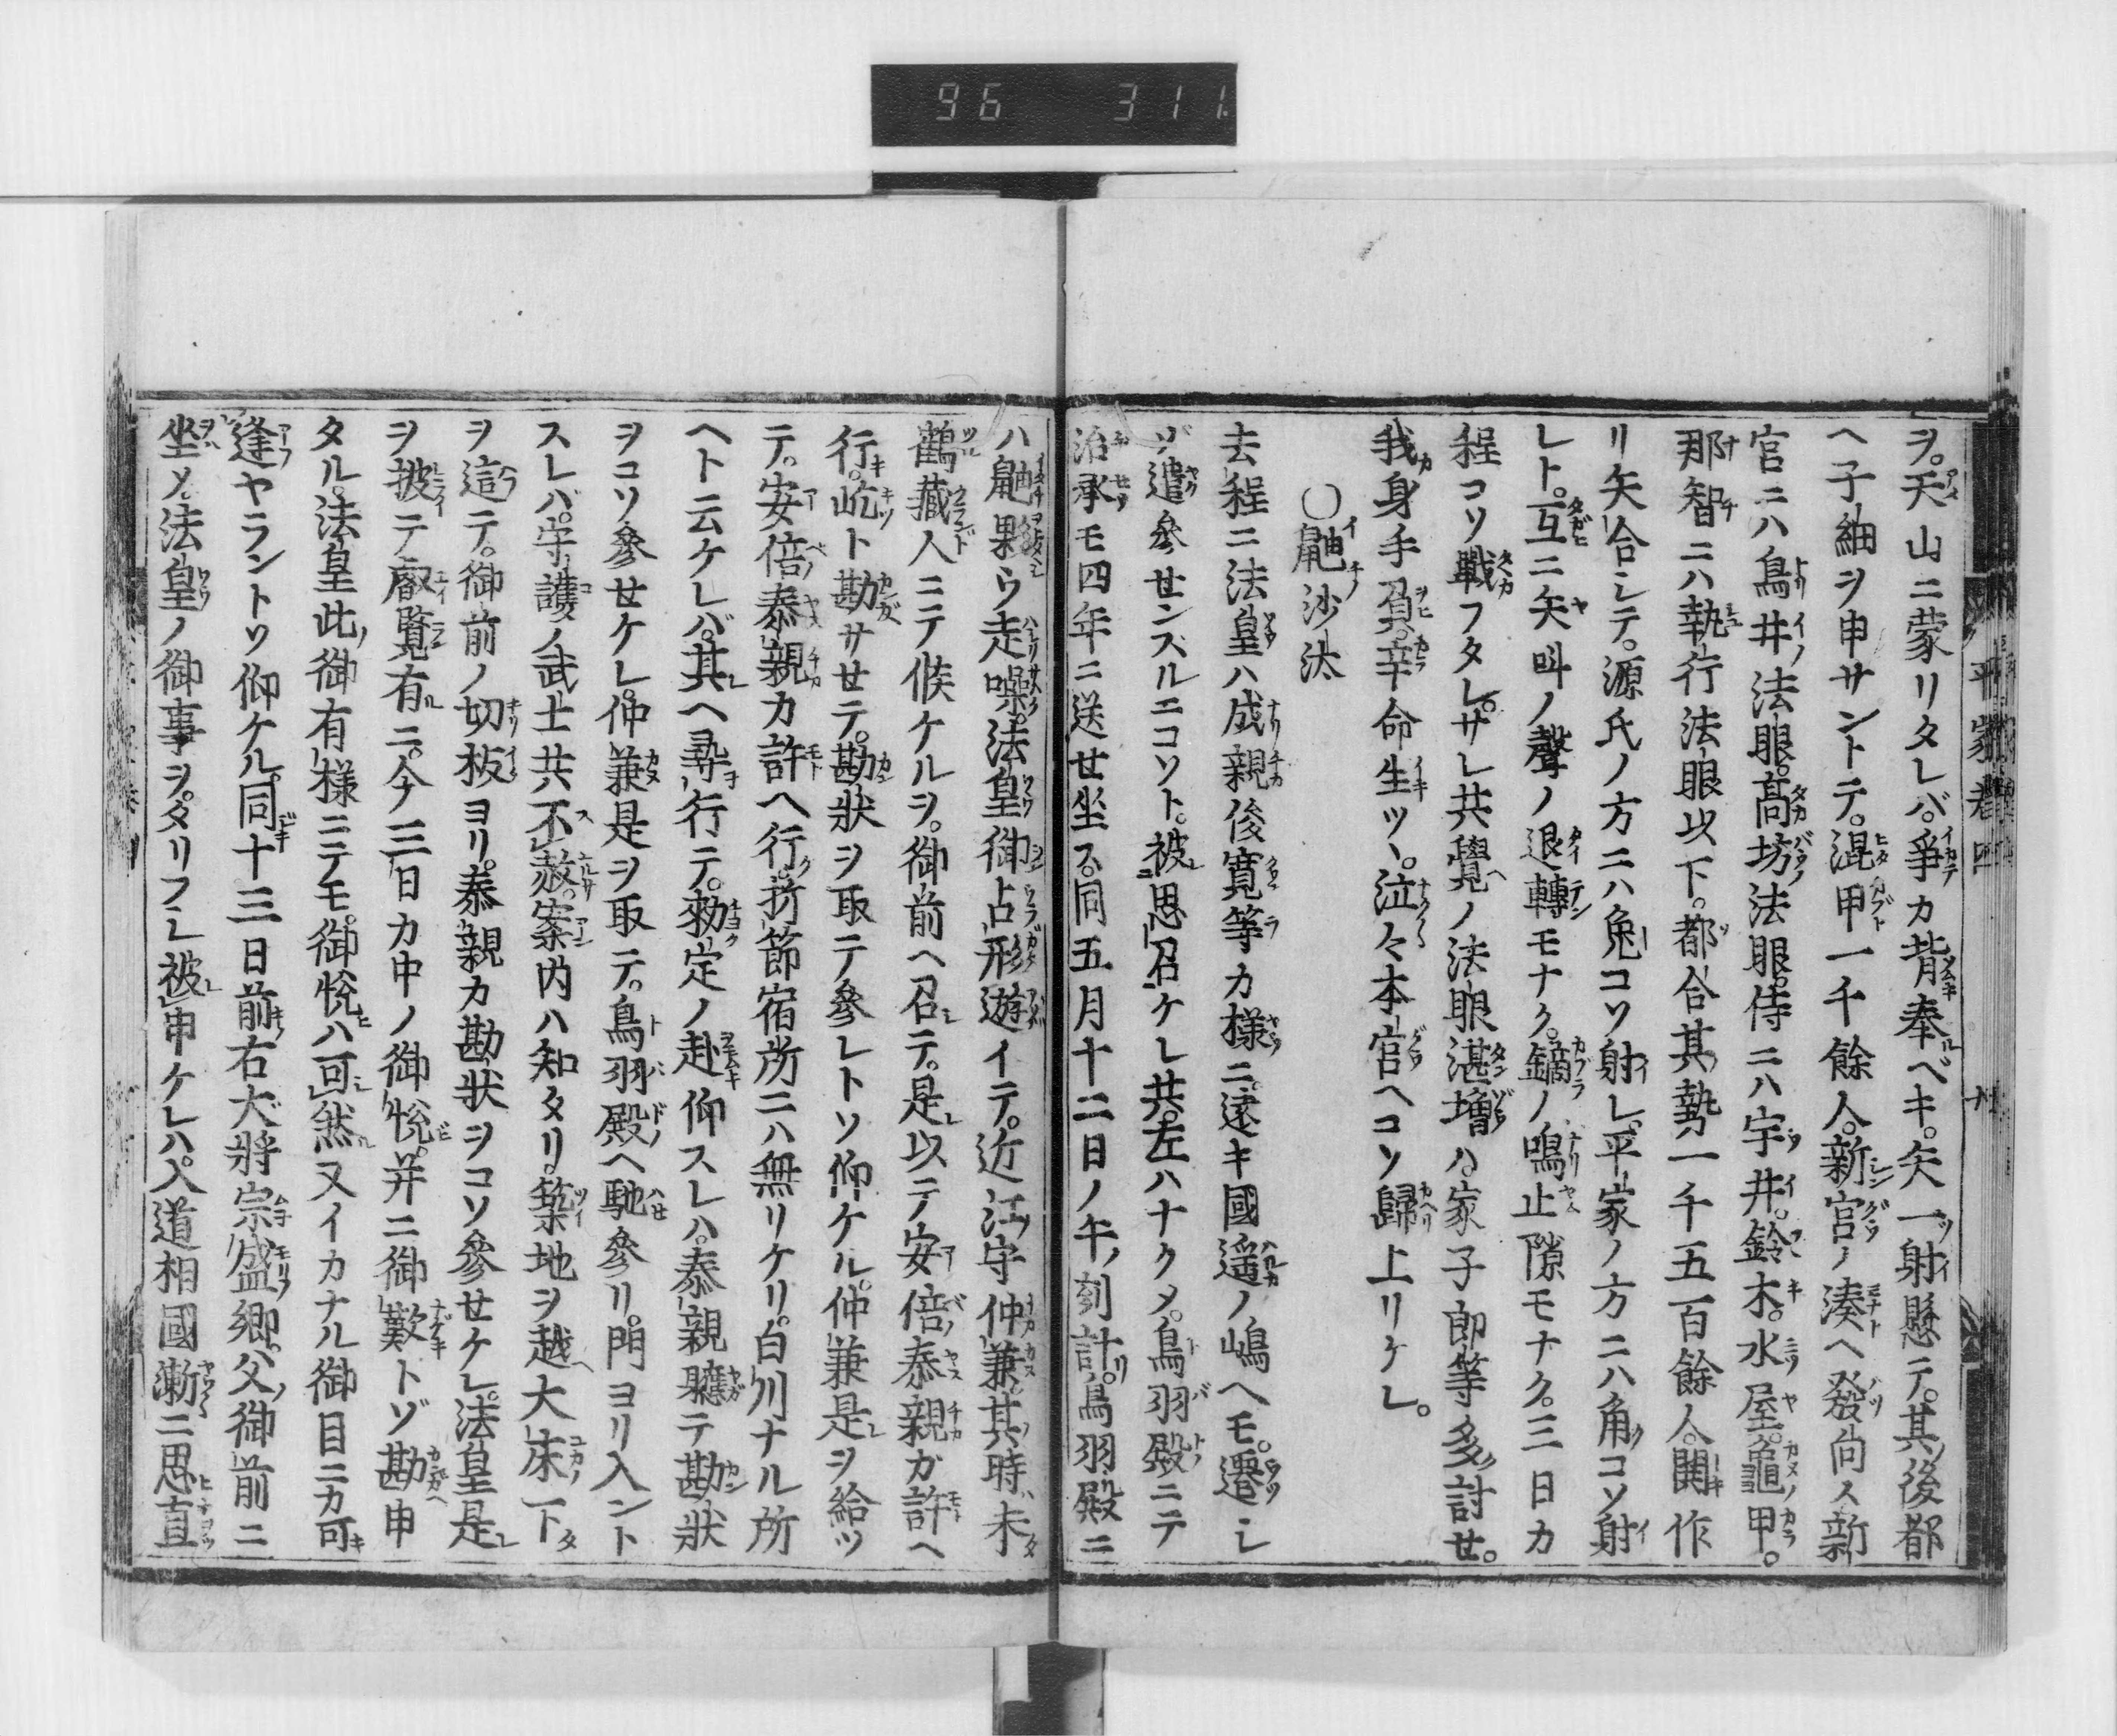 96 311.
ヲ。天山ニ蒙リタレバ。爭カ背奉ベキ。矢一射懸テ。其後都
ヘ子細ヲ申サントテ。混甲一千餘人。新宮ノ湊ヘ發向ス新
官ニハ鳥井法眼。高坊法眼。侍ニハ宇井。鈴木。水屋。龜甲。
那智ニハ執行法眼以下。都合其勢一千五百餘人。閧作
リ矢合シテ。源氏ノ方ニハ兔コソ射レ。平家ノ方ニハ角コソ射
レト。互ニ矢叫ノ聲ノ退轉モナク。鏑ノ鳴止隙モナク。三日カ
程コソ戰フタレ。サレ共覺ノ法眼湛増ハ。家子郎等多討せ。
我身手負。辛命生ツヽ。泣々本宮ヘコソ歸上リケレ。
〇鼬沙汰
去程ニ法皇ハ成親俊寛等カ樣ニ。遠キ國遥ノ嶋ヘモ。遷シ
ゾ遣參せンズルニコソト。被思召ケレ共。左ハナクメ。鳥羽殿ニテ
治承モ四年ニ送せ坐ス。同五月十二日ノ午ノ刻計。鳥羽殿ニ
ハ鼬夥ウ走噪。法皇御占形遊イテ。近江守仲兼其時未
鶴藏人ニテ候ケルヲ。御前ヘ召テ。是以テ安倍泰親ガ許ヘ
行。屹ト勘サせテ。勘狀ヲ取テ參レトソ仰ケル。仲兼是ヲ給ツ
テ。安倍泰親カ許ヘ行。折節宿所ニハ無リケリ。白川ナル所
ヘト云ケレバ。其ヘ尋行テ。勅定ノ赴仰スレハ。泰親聽テ勘狀
ヲコソ參せケレ。仲兼是ヲ取テ。鳥羽殿ヘ馳參リ。門ヨリ入ント
スレバ。守護ノ武士共不赦。案内ハ知タリ。築地ヲ越ヘ大床下
ヲ這テ。御前ノ切板ヨリ。泰親カ勘狀ヲコソ參せケレ。法皇是
ヲ披テ叡覽有ニ。今三日カ中ノ御悅。并ニ御歎トゾ勘申
タル。法皇此御有樣ニテモ。御悅ハ可然又イカナル御目ニカ可
逢ヤラントソ仰ケル。同十三日前右大將宗盛卿。父御前ニ
坐メ。法皇ノ御事ヲ。タリフシ被申ケレハ。入道相國漸ニ思直